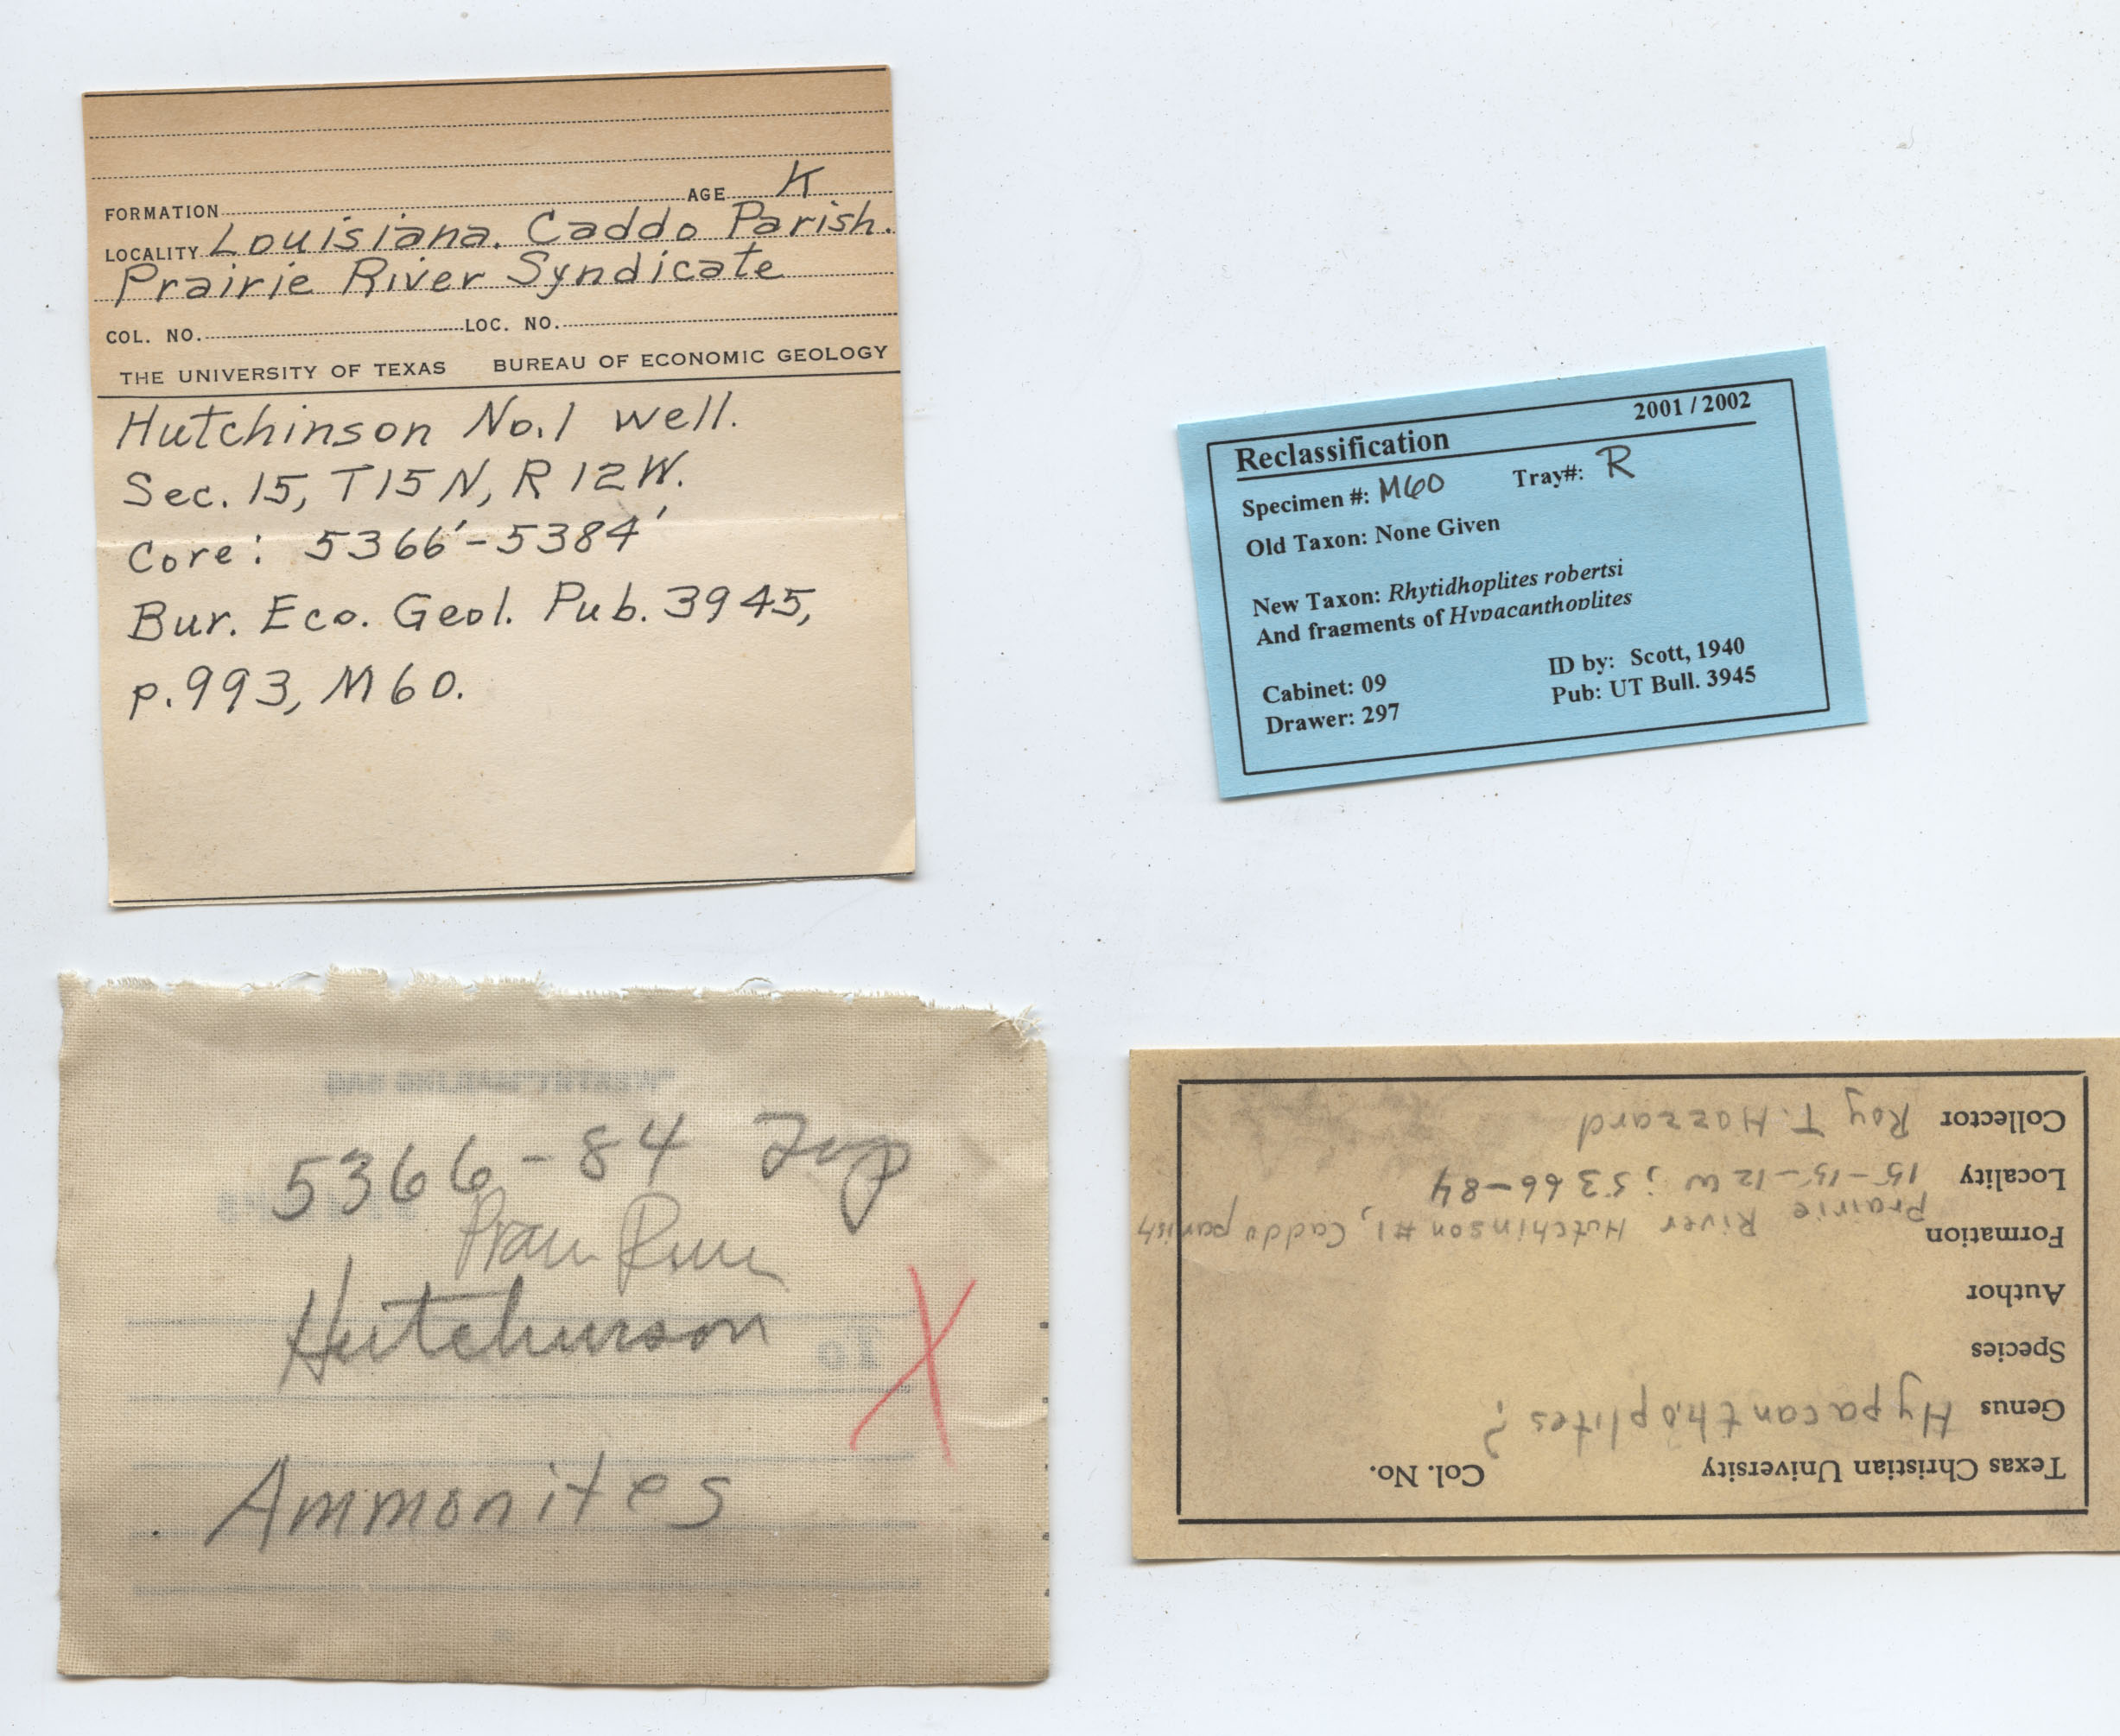 FORMATION AGE K
LOCALITY Louisiana. Caddo Parish.
Prairie River Syndicate
COL. NO. LOC. NO.
THE UNIVERSITY OF TEXAS BUREAU OF ECONOMIC GEOLOGY
Hutchinson No.1 well.
Sec. 15, T15N, R12W.
Core: 5366'-5384'
Bur. Eco. Geol. Pub. 3945,
p.993, M60.
2001 / 2002
Reclassification
Specimen #: M60 Tray#: R
Old Taxon: None Given
New Taxon: Rhytidhoplites robertsi
And fragments of Hypacanthoplites
Cabinet: 09 ID by: Scott, 1940
Drawer: 297 Pub: UT Bull. 3945
5366-84
Hutchinson
Ammonites
X
Texas Christian University Col. No.
Genus Hypacanthoplites?
Species
Author
Formation Prairie River Hutchinson #1, Caddo parish
Locality 15-15-12W; 5366-84
Collector Roy T. Hazzard